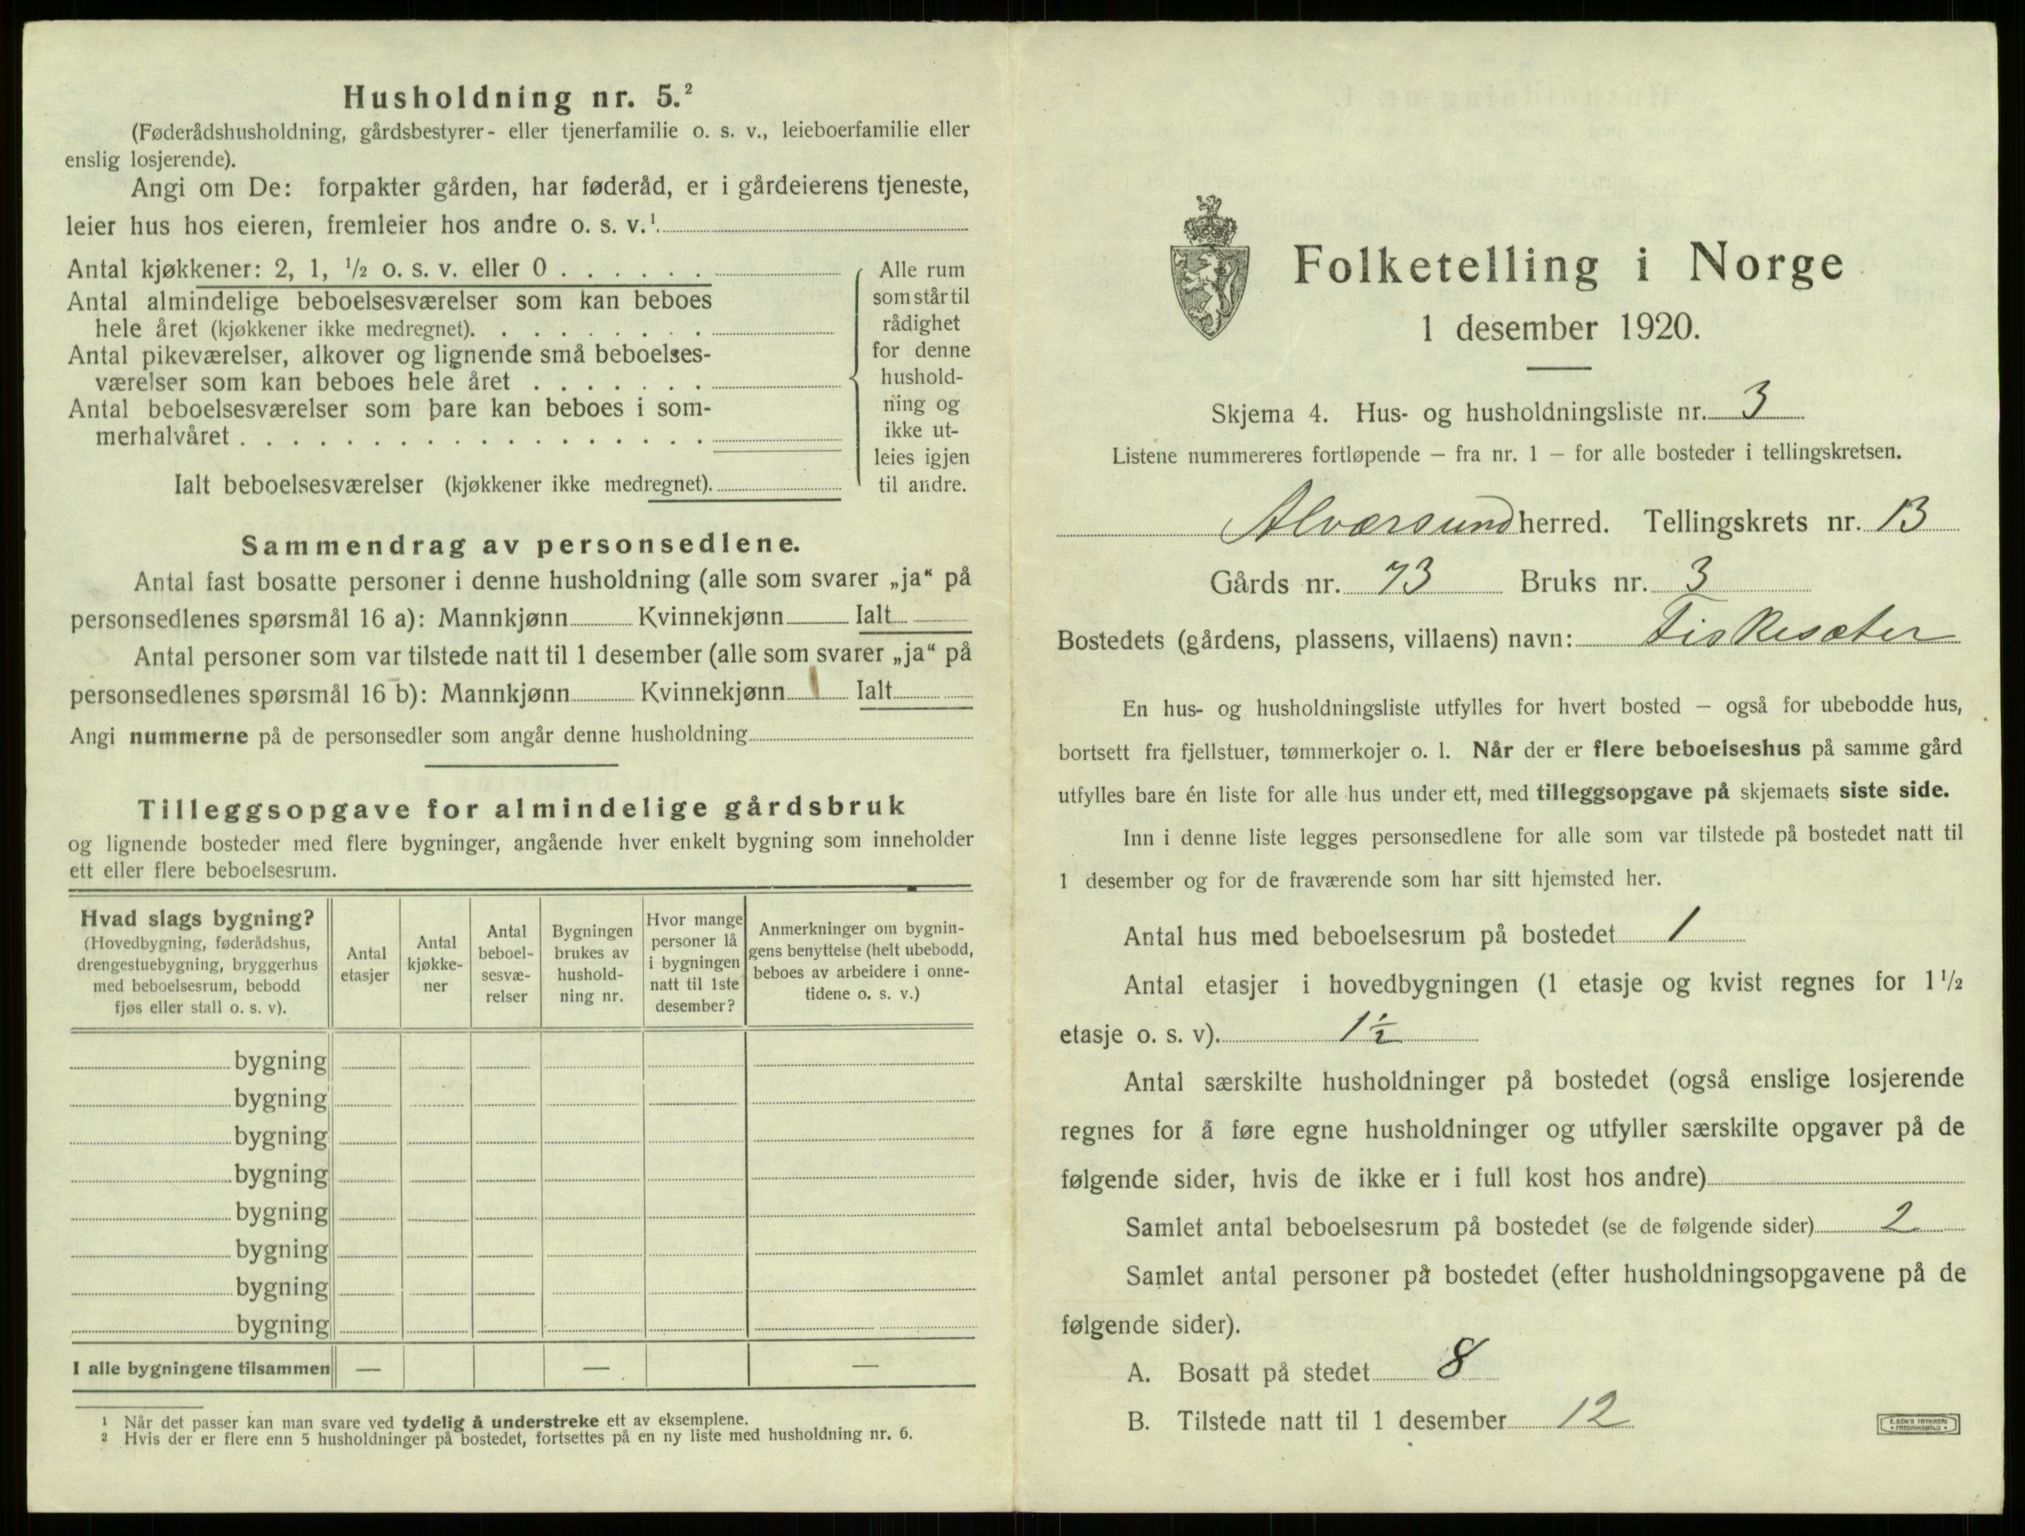 Husholdning nr. 5.²
(Føderådshusholdning, gårdsbestyrer- eller tjenerfamilie o. s. v., leieboerfamilie eller
enslig losjerende).
Angi om De: forpakter gården, har føderåd, er i gårdeierens tjeneste,
leier hus hos eieren, fremleier hos andre o. s. v.¹
Antal kjøkkener: 2, 1, ½ o. s. v. eller 0 . . . . . .
Antal almindelige beboelsesværelser som kan beboes
hele året (kjøkkener ikke medregnet). . . . . . . . .
Antal pikeværelser, alkover og lignende små beboelses-
værelser som kan beboes hele året . . . . . . .
Antal beboelsesværelser som bare kan beboes i som-
merhalvåret . . . . . . . . . . . . . . . . . .
Ialt beboelsesværelser (kjøkkener ikke medregnet).
Alle rum
som står til
rådighet
for denne
hushold-
ning og
ikke ut-
leies igjen
til andre.
Sammendrag av personsedlene.
Antal fast bosatte personer i denne husholdning (alle som svarer „ja“ på
personsedlenes spørsmål 16 a): Mannkjønn Kvinnekjønn Ialt
Antal personer som var tilstede natt til 1 desember (alle som svarer „ja“ på
personsedlenes spørsmål 16 b): Mannkjønn Kvinnekjønn Ialt
Angi nummerne på de personsedler som angår denne husholdning
Tilleggsopgave for almindelige gårdsbruk
og lignende bosteder med flere bygninger, angående hver enkelt bygning som inneholder
ett eller flere beboelsesrum.
Hvad slags bygning?
(Hovedbygning, føderådshus,
drengestuebygning, bryggerhus
med beboelsesrum, bebodd
fjøs eller stall o. s. v).
Antal
etasjer
Antal
kjøkke-
ner
Antal
beboel-
sesvæ-
relser
Bygningen
brukes av
hushold-
ning nr.
Hvor mange
personer lå
i bygningen
natt til 1ste
desember?
Anmerkninger om bygnin-
gens benyttelse (helt ubebodd,
beboes av arbeidere i onne-
tidene o. s. v.)
bygning
bygning
bygning
bygning
bygning
bygning
bygning
bygning
I alle bygningene tilsammen — — —
¹ Når det passer kan man svare ved tydelig å understreke ett av eksemplene.
² Hvis der er flere enn 5 husholdninger på bostedet, fortsettes på en ny liste med husholdning nr. 6.
Folketelling i Norge
1 desember 1920.
Skjema 4. Hus- og husholdningsliste nr. 3
Listene nummereres fortløpende – fra nr. 1 – for alle bosteder i tellingskretsen.
Alværsund herred. Tellingskrets nr. 13
Gårds nr. 73 Bruks nr. 3
Bostedets (gårdens, plassens, villaens) navn: Fiskesæter
En hus- og husholdningsliste utfylles for hvert bosted – også for ubebodde hus,
bortsett fra fjellstuer, tømmerkojer o. l. Når der er flere beboelseshus på samme gård
utfylles bare én liste for alle hus under ett, med tilleggsopgave på skjemaets siste side.
Inn i denne liste legges personsedlene for alle som var tilstede på bostedet natt til
1 desember og for de fraværende som har sitt hjemsted her.
Antal hus med beboelsesrum på bostedet 1
Antal etasjer i hovedbygningen (1 etasje og kvist regnes for 1½
etasje o. s. v). 1½
Antal særskilte husholdninger på bostedet (også enslige losjerende
regnes for å føre egne husholdninger og utfyller særskilte opgaver på de
følgende sider, hvis de ikke er i full kost hos andre)
Samlet antal beboelsesrum på bostedet (se de følgende sider) 2
Samlet antal personer på bostedet (efter husholdningsopgavene på de
følgende sider).
A. Bosatt på stedet 8
B. Tilstede natt til 1 desember 12